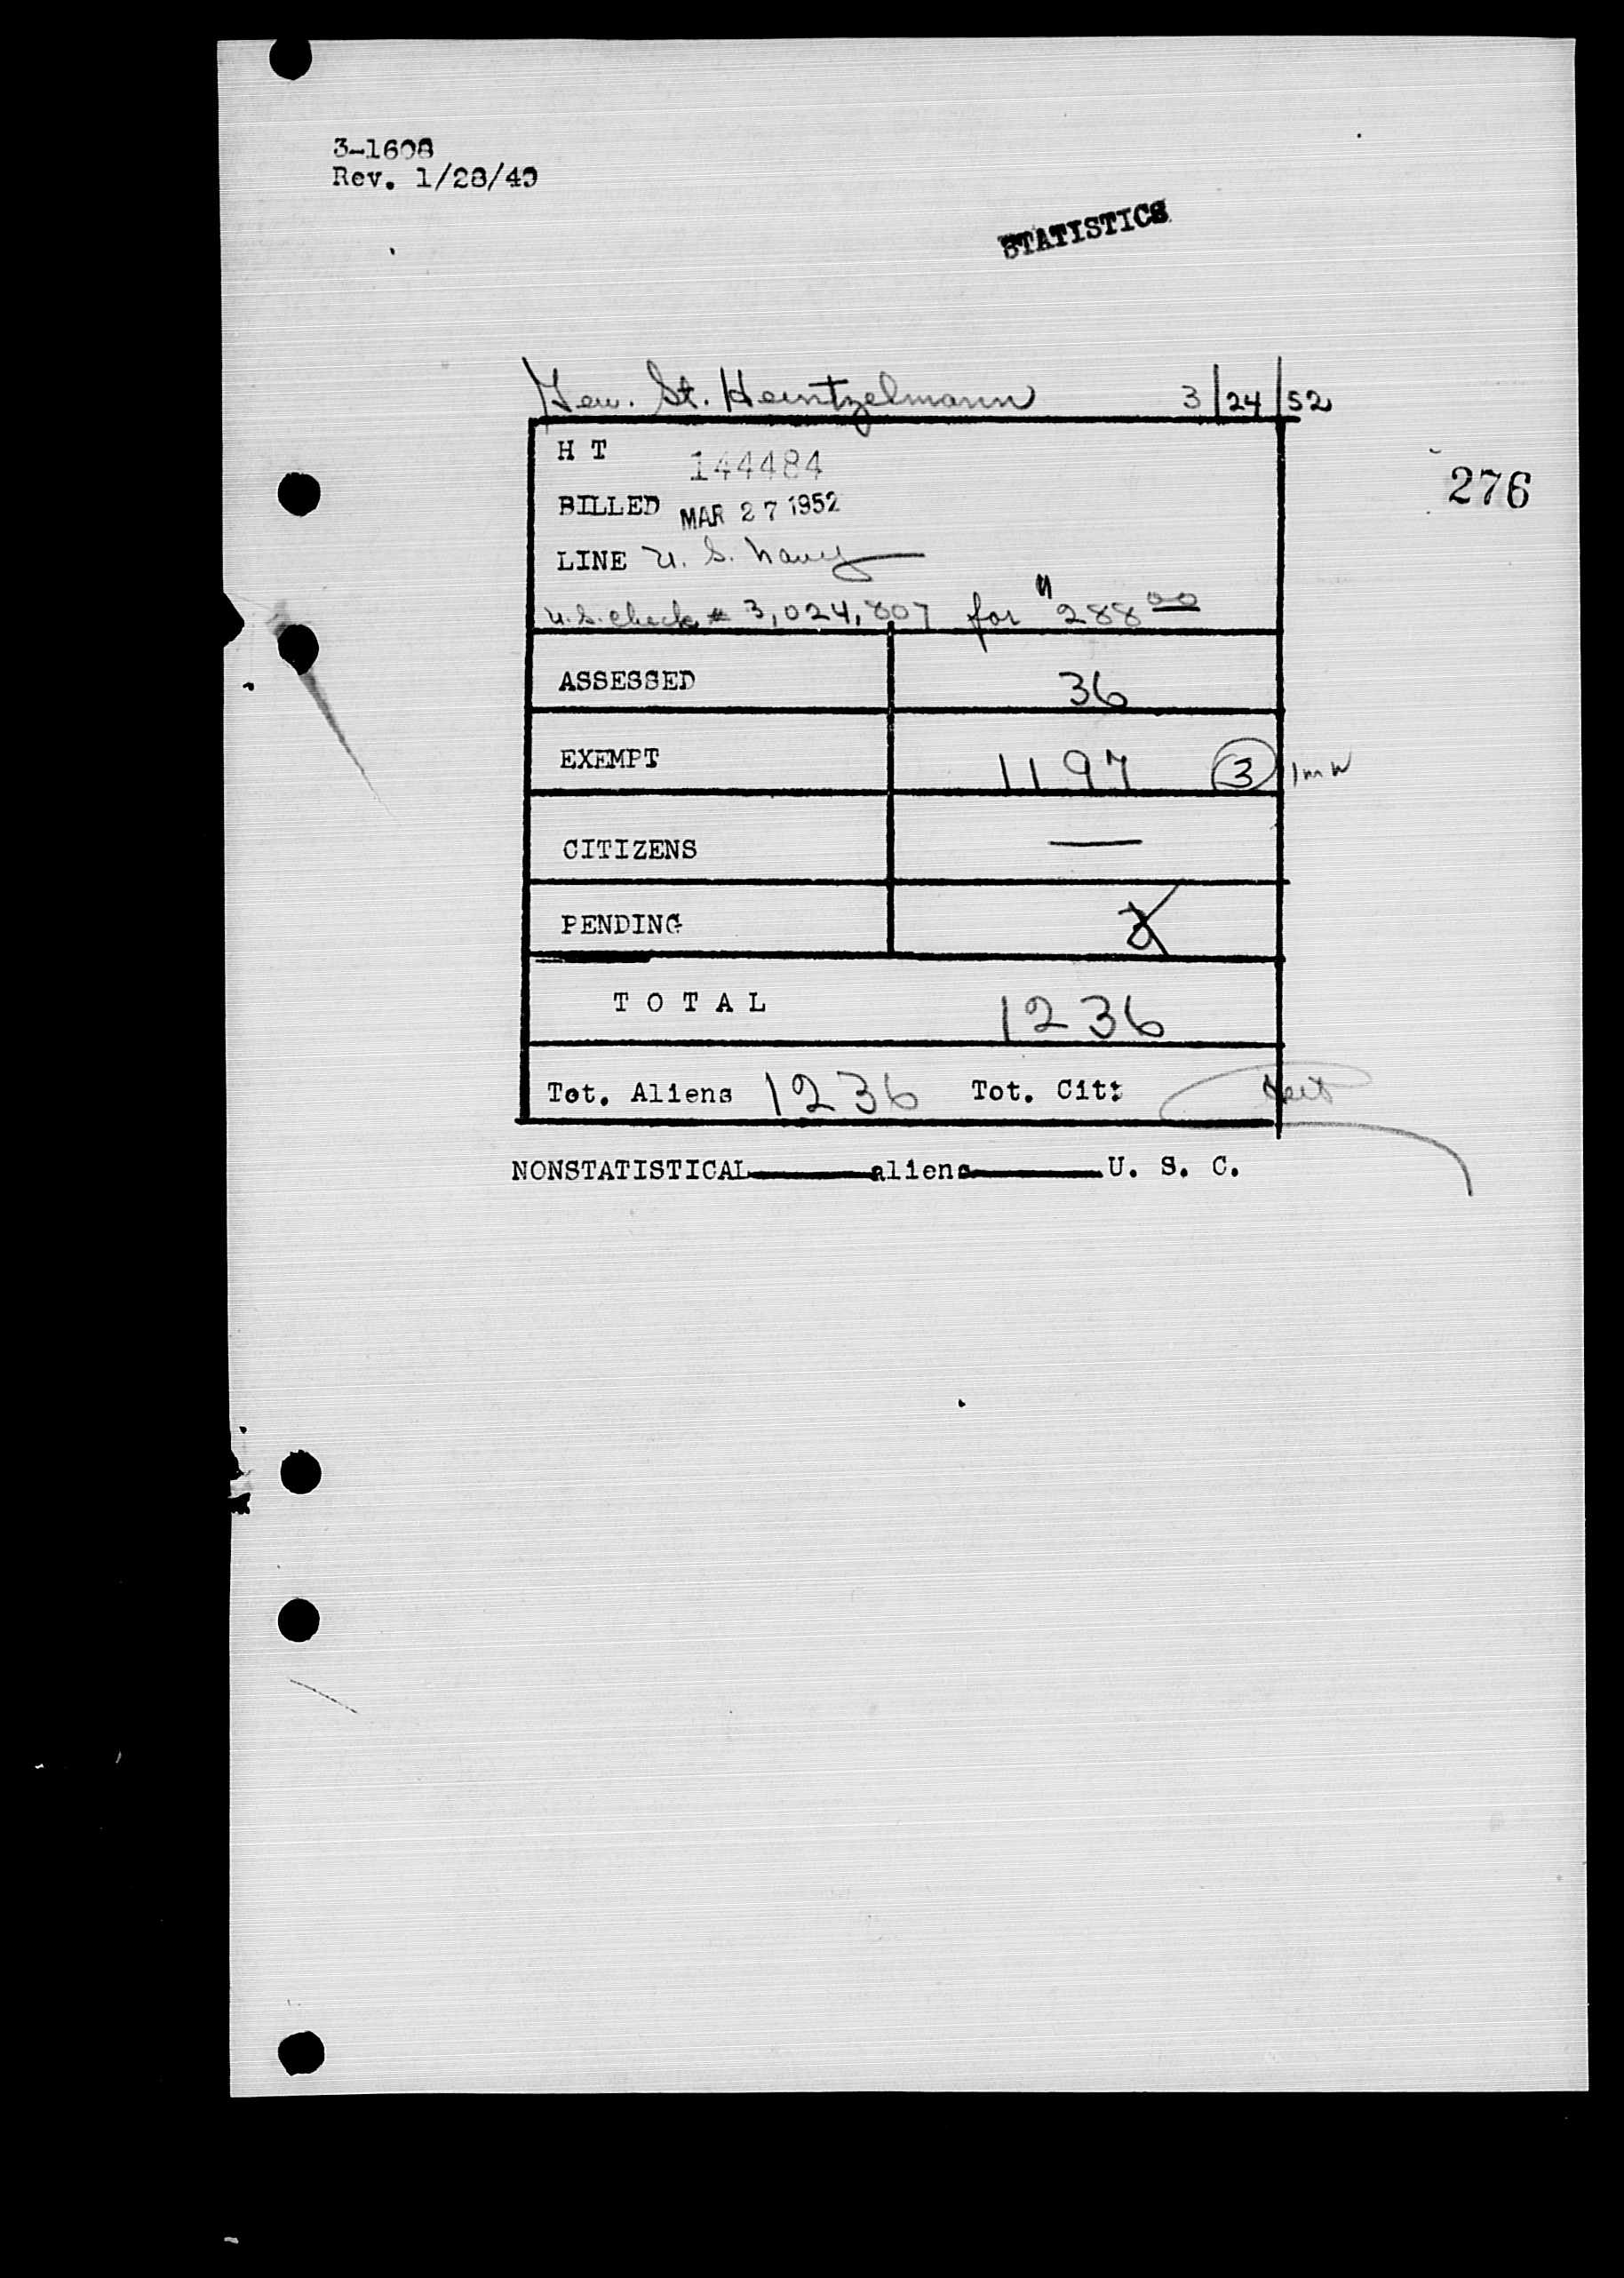 3-1608
Rev. 1/28/49
STATISTICS
Gen. St. Heintzelmann 3/24/52
H T 144484
276
BILLED MAR 27 1952
LINE U. S. Navy
U.S. Check # 3,024,807 for $288 00
ASSESSED 36
EXEMPT 1197 3
CITIZENS —
PENDING
T O T A L 1236
Tot. Aliens 1236 Tot. Cit:
NONSTATISTICAL aliens U. S. C.